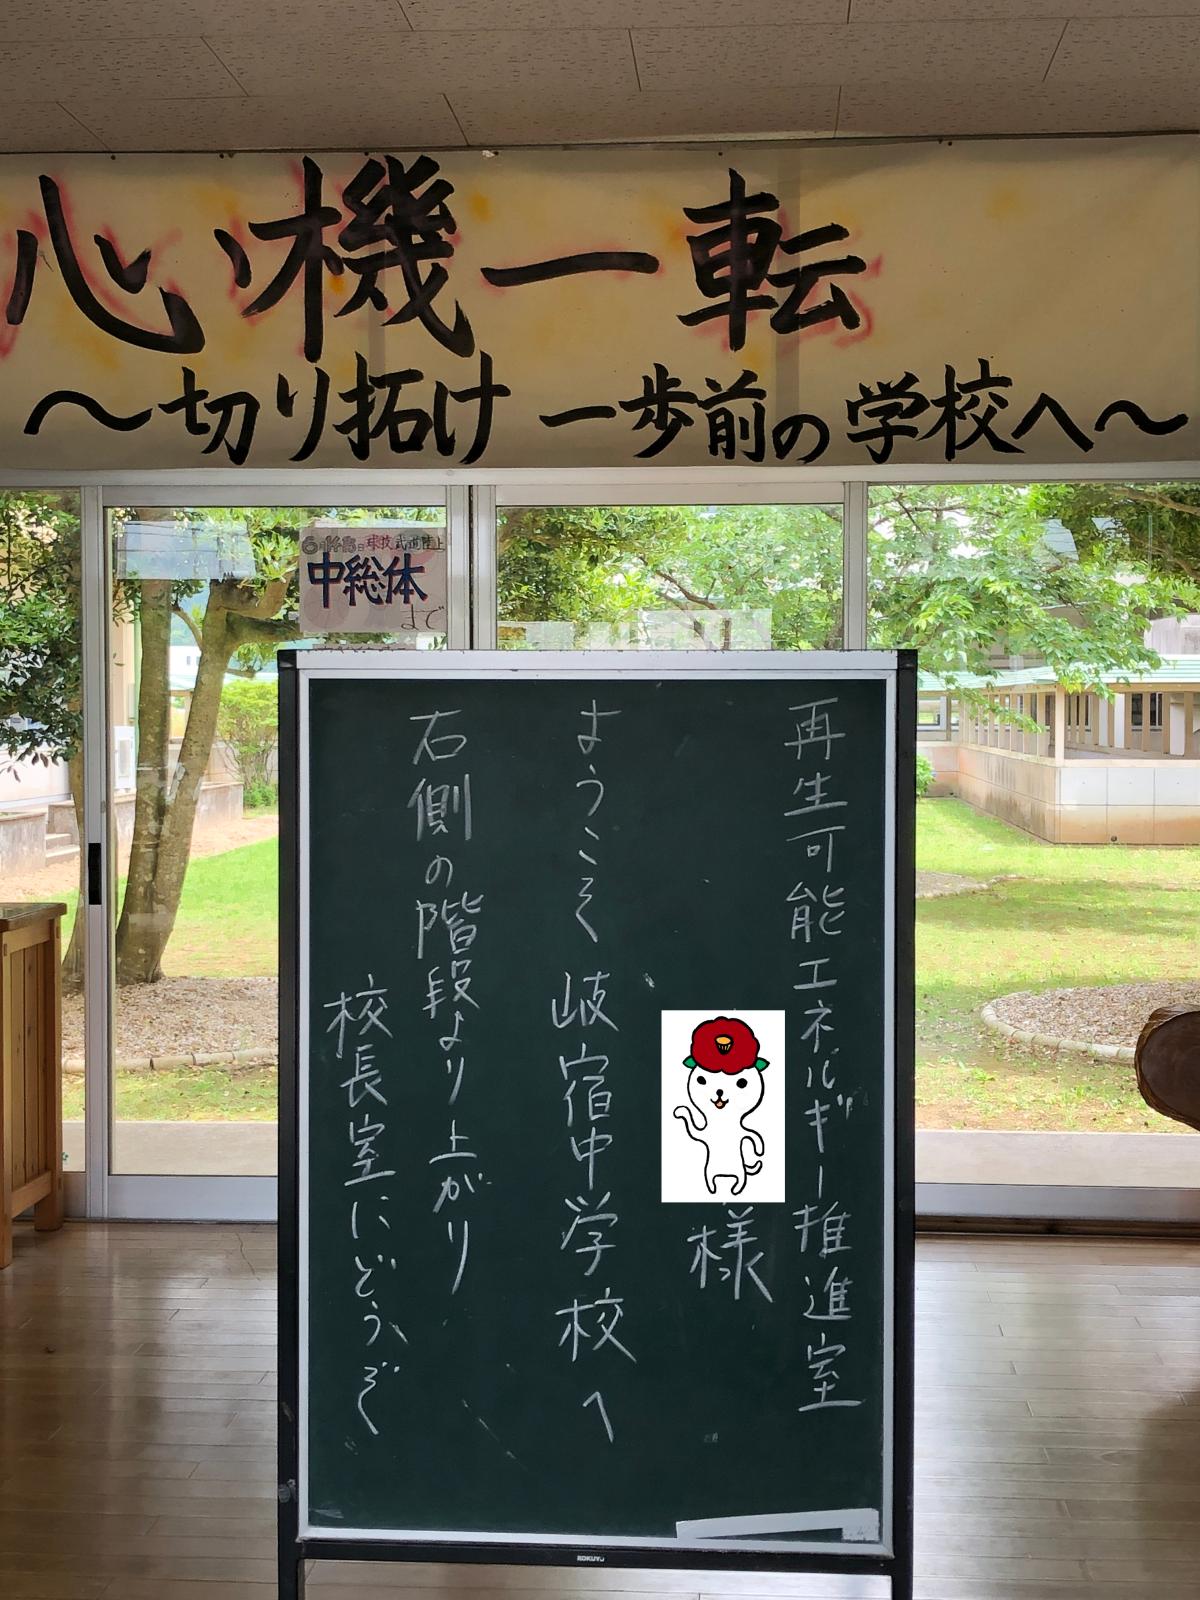 心機一転
～切り拓け 一歩前の学校へ～
球技武道陸上
中総体
まで
再生可能エネルギー推進室
様
ようこそ 岐宿中学校へ
右側の階段より上がり
校長室にどうぞ
KOKUYO